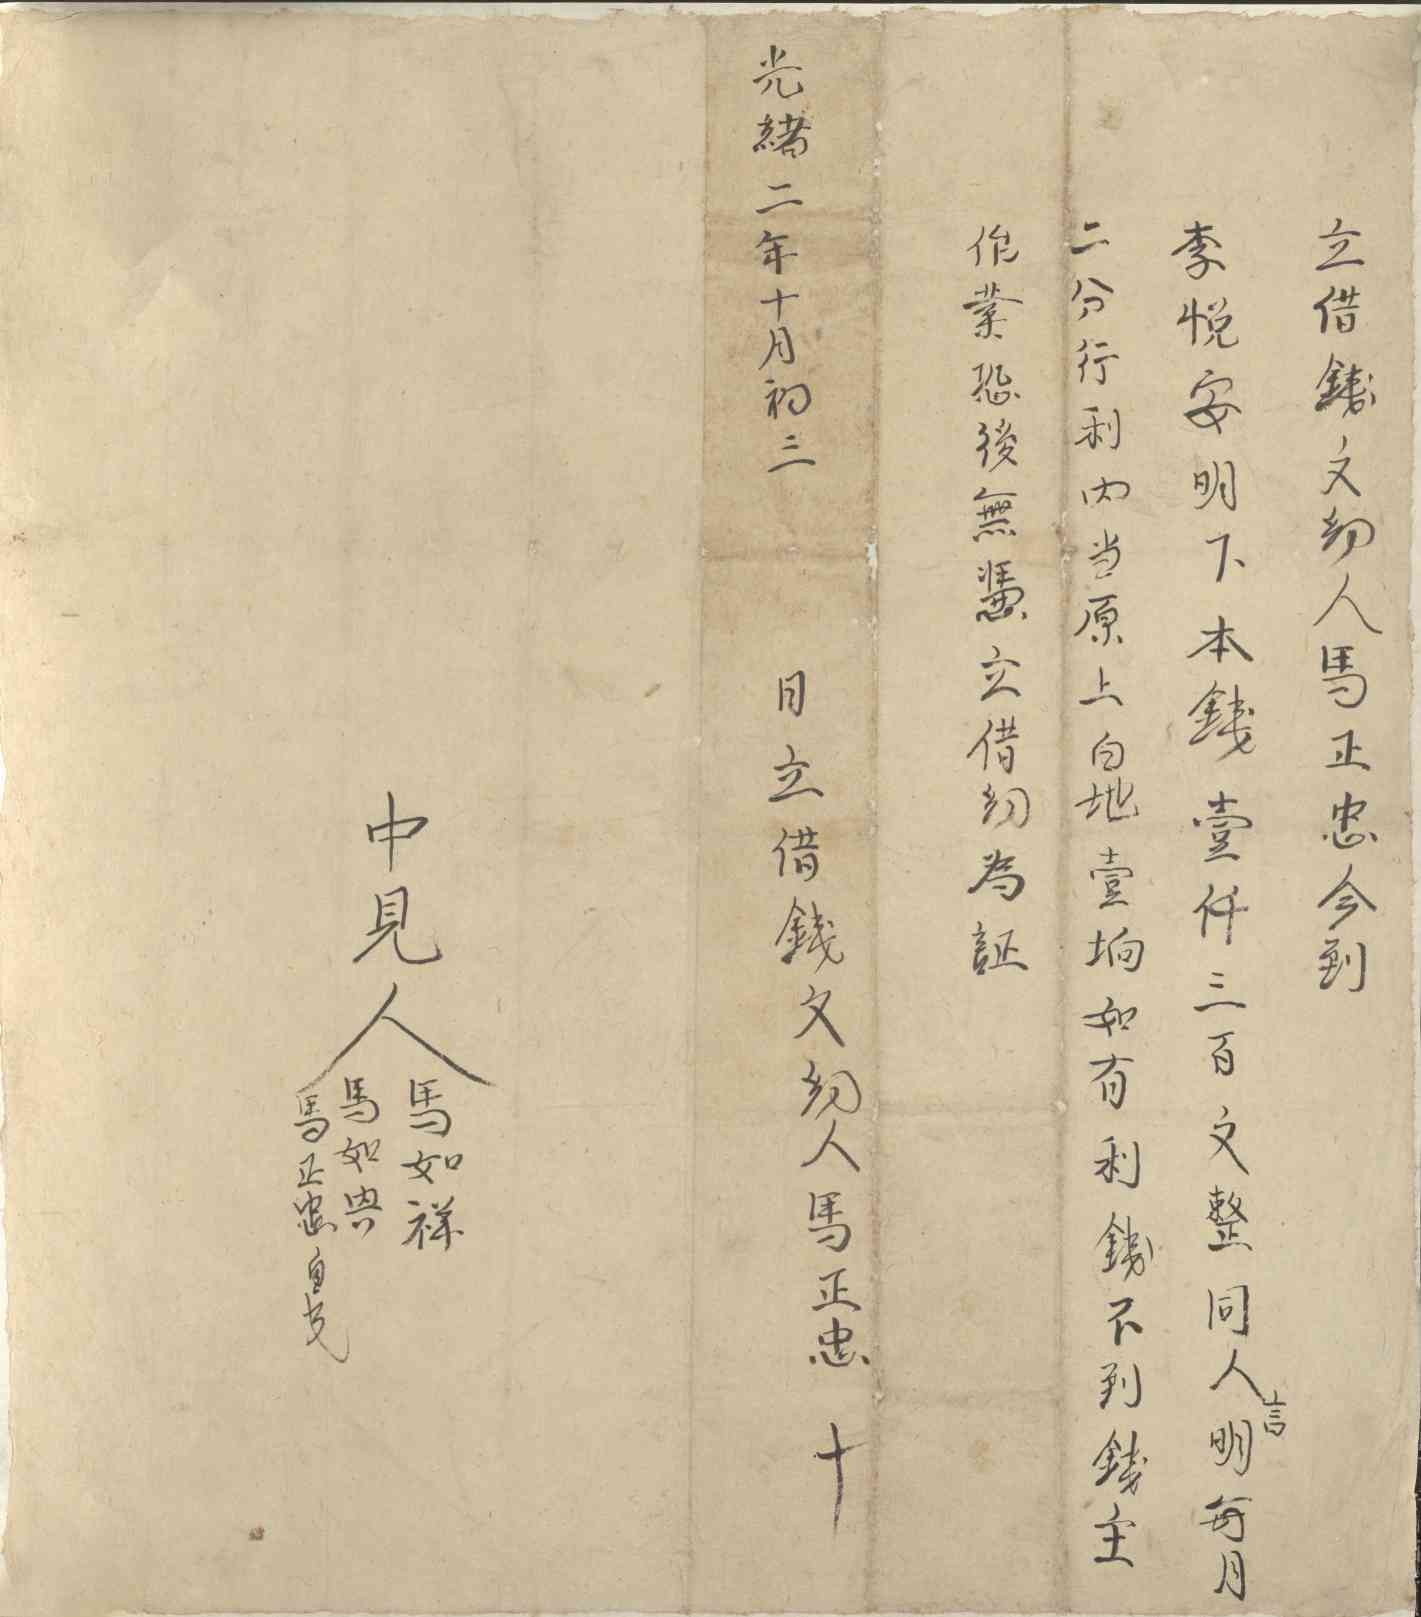 立借錢文約人馬正忠今到
李悅安明下本錢壹仟三百文整同人言明每月
二分行利內当原上白地壹垧如有利錢不到錢主
作業恐後無憑立借約為証
光緒二年十月初三 日立借錢文約人馬正忠 十
中見人
馬如祥
馬如典
馬正忠自